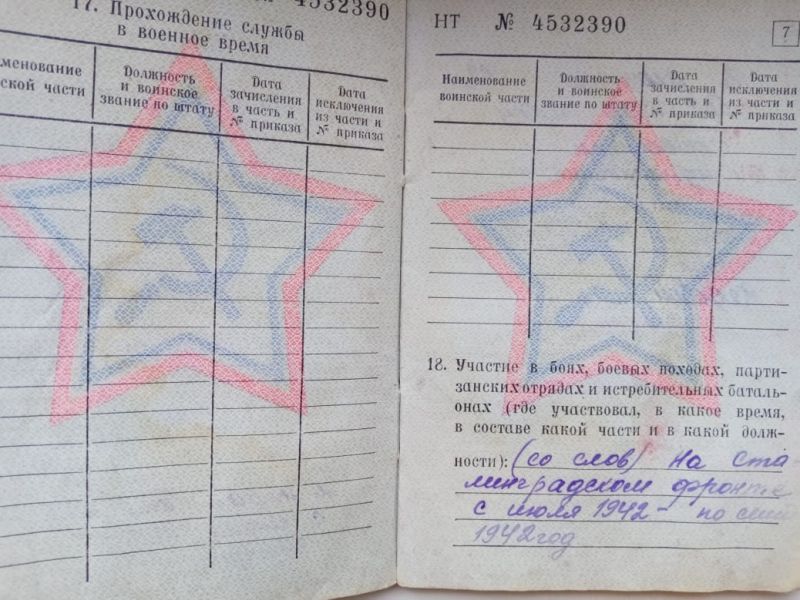 № 4532390
17. Прохождение службы
в военное время
менование
ской части
Должность
и воинское
звание по штату
Дата
зачисления
в часть и
№ приказа
Дата
исключения
из части и
№ приказа
НТ № 4532390
7
Наименование
воинской части
Должность
и воинское
звание по штату
Дата
зачисления
в часть и
№ приказа
Дата
исключения
из части и
№ приказа
18. Участие в боях, боевых походах, парти-
занских отрядах и истребительных баталь-
онах (где участвовал, в какое время,
в составе какой части и в какой долж-
ности): (со слов) На Ста
линградском фронте
с июля 1942 - по
1942 год